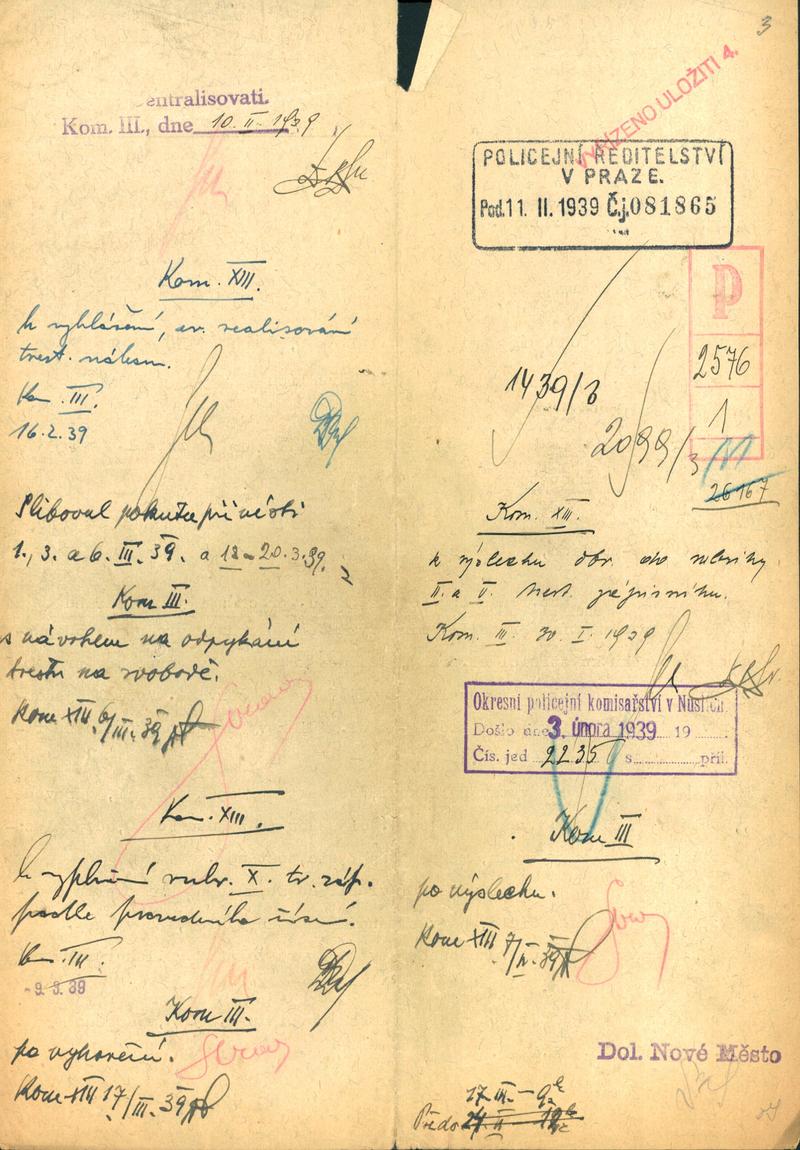 3
NAŘÍZENO ULOŽITI 4.
entralisovati.
Kom. III., dne 10. II. 1939
POLICEJNÍ ŘEDITELSTVÍ
V PRAZE.
Pod. 11. II. 1939 Čj. 081865
Kom. XIII.
k vyhlášení, ev. realisování
trest. nálezu.
Kom. III.
16.2.39
Sliboval pokutu při
1., 3. a 6. III. 39. a 18 - 20. 3. 39.
Kom III.
s návrhem na odpykání
trestu na svobodě.
Kom XIII 6/III. 39
Kom. XIII.
k vyplnění rubr. X. tr. záp.
podle
Kom. III.
- 9. 3. 39
Kom III.
po vyhovění.
Kom XIII 17/III. 39
P
2576
1
1439/3
2099/3
26167
Kom. XIII.
k výslechu obv. do rubriky
II. a V. trest. zápisníku.
Kom. III. 30. I. 1939
Okresní policejní komisařství v Nuslích.
Došlo dne 3. února 1939 19
Čís. jed 2235 s příl.
Kom III
po výslechu.
Kom XIII 7/II. 39
Dol. Nové Město
17. III - 9
Předv. 24. II